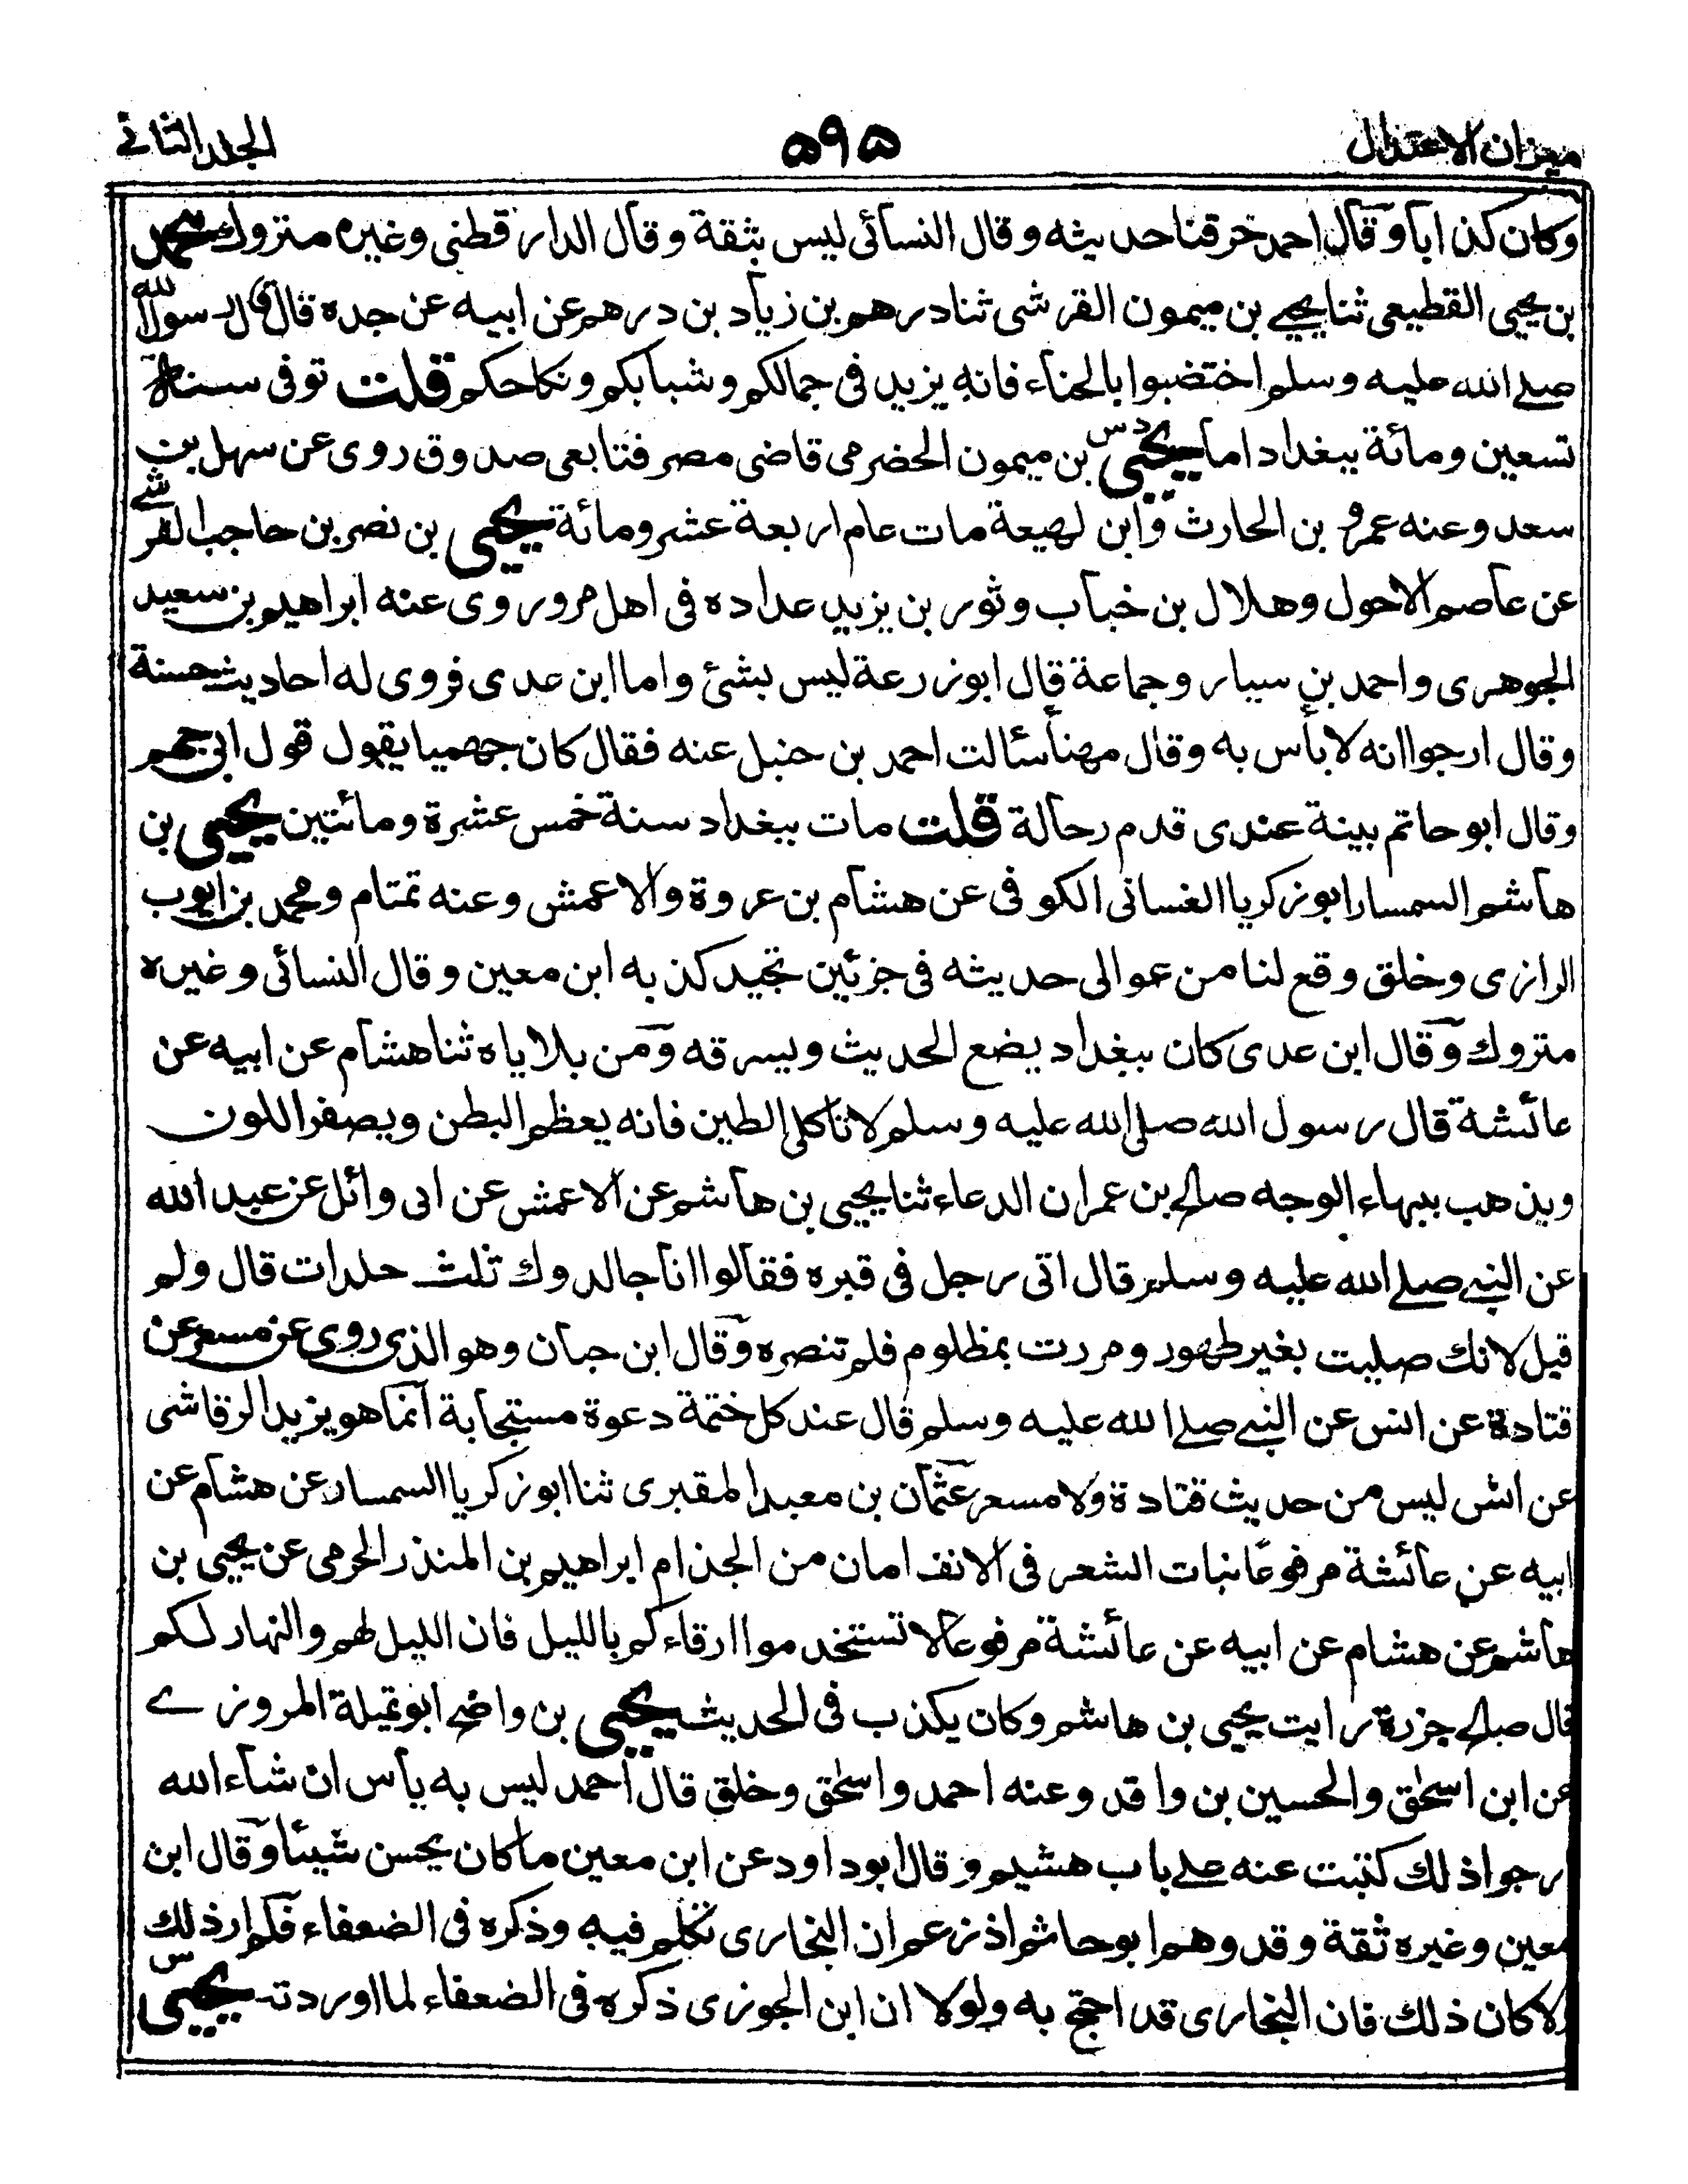 ميزان الاعتدال ٥٩٥ الجلد الثاني
وكان كذابا وقال احمد خرقنا حديثه وقال النسائى ليس بثقة وقال الدارقطنى وغيره متروك محمد
بن يحيى القطيعى ثنا يحيى بن ميمون القرشى ثنا درهم بن زياد بن درهم عن ابيه عن جده قال قال رسول الله
صلى الله عليه وسلم اختضبوا بالحناء فانه يزيد فى جمالكم وشبابكم ونكاحكم قلت توفى سنة
تسعين ومائة ببغداد اما يحيى دس بن ميمون الحضرمى قاضى مصر فتابعى صدوق روى عن سهل بن
سعد وعنه عمرو بن الحارث وابن لهيعة مات عام اربعة عشر ومائة يحيى بن نصر بن حاجب القرشى
عن عاصم الاحول وهلال بن خباب وثور بن يزيد عداده فى اهل مرو روى عنه ابراهيم بن سعيد
الجوهرى واحمد بن سيار وجماعة قال ابو زرعة ليس بشئ واما ابن عدى فروى له احاديث حسنة
وقال ارجوا انه لا بأس به وقال مهنأ سألت احمد بن حنبل عنه فقال كان جهميا يقول قول ابى جهم
وقال ابو حاتم بينة عندى قدم رحالة قلت مات ببغداد سنة خمس عشرة ومائتين يحيى بن
هاشم السمسار ابو زكريا الغسانى الكوفى عن هشام بن عروة والاعمش وعنه تمتام ومحمد بن ايوب
الرازى وخلق وقع لنا من عوالى حديثه فى جزئين نجيد كذبه ابن معين وقال النسائى وغيره
متروك وقال ابن عدى كان ببغداد يضع الحديث ويسرقه ومن بلاياه ثنا هشام عن ابيه عن
عائشة قال رسول الله صلى الله عليه وسلم لا تاكلى الطين فانه يعظم البطن ويصفر اللون
ويذهب ببهاء الوجه صالح بن عمران الدعاء ثنا يحيى بن هاشم عن الاعمش عن ابى وائل عن عبد الله
عن النبى صلى الله عليه وسلم قال اتى رجل فى قبره فقالوا انا جالدوك ثلث جلدات قال ولم
قيل لانك صليت بغير طهور ومررت بمظلوم فلم تنصره وقال ابن حبان وهو الذى روى عن مسعر عن
قتادة عن انس عن النبى صلى الله عليه وسلم قال عند كل ختمة دعوة مستجابة انما هو يزيد الرقاشى
عن انس ليس من حديث قتادة ولا مسعر عثمان بن معبد المقبرى ثنا ابو زكريا السمسار عن هشام عن
ابيه عن عائشة مرفوعا نبات الشعر فى الانف امان من الجذام ابراهيم بن المنذر الحرمى عن يحيى بن
هاشم عن هشام عن ابيه عن عائشة مرفوعا لا تستخدموا ارقاءكم بالليل فان الليل لهم والنهار لكم
قال صالح جزرة رايت يحيى بن هاشم وكان يكذب فى الحديث يحيى بن واضح ابو تميلة المروزى
عن ابن اسحق والحسين بن واقد وعنه احمد واسحق وخلق قال احمد ليس به بأس ان شاء الله
ارجو اذ لك كتبت عنه على باب هشيم وقال ابو داود عن ابن معين ما كان يحسن شيئا وقال ابن
معين وغيره ثقة وقد وهم ابو حاتم اذ زعم ان البخارى تكلم فيه وذكره فى الضعفاء فلم ار ذلك
ولا كان ذلك فان البخارى قد احتج به ولولا ان ابن الجوزى ذكره فى الضعفاء لما اوردته يحيى س